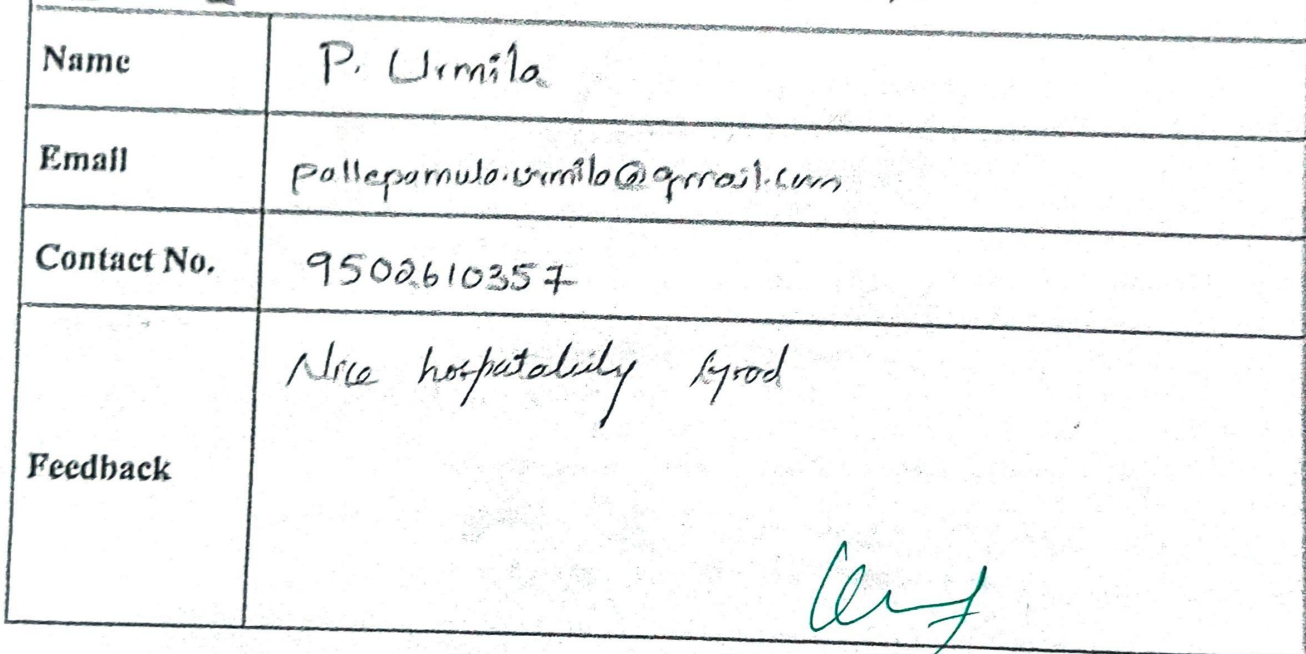 Name P. Urmila
Email pallepamula.urmila@gmail.com
Contact No. 9502610357
Nice hospatality Good
Feedback